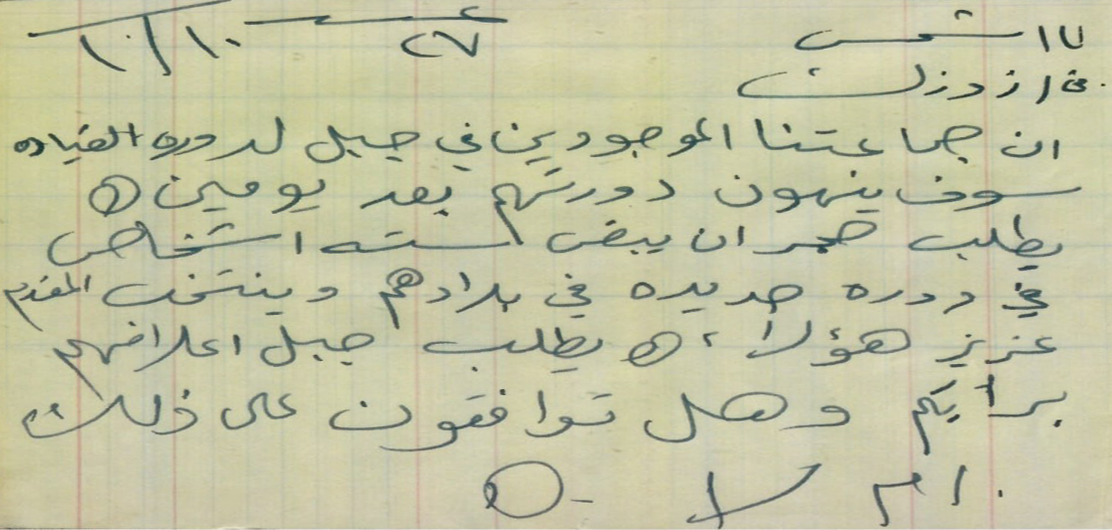 ١٠/١٠ ع ٢٧ لا / شمس
ان جماعتنا الموجودين في جبل لدوره القياده
سوف ينهون دورتهم بعد يومين
يطلب ان يبقى سته اشخاص
في دوره جديده في بلادهم وينتخب المقدم
عزيز هؤلاء، يطلب جبل اعلامهم
برأيكم وهل توافقون على ذلك
ام لا